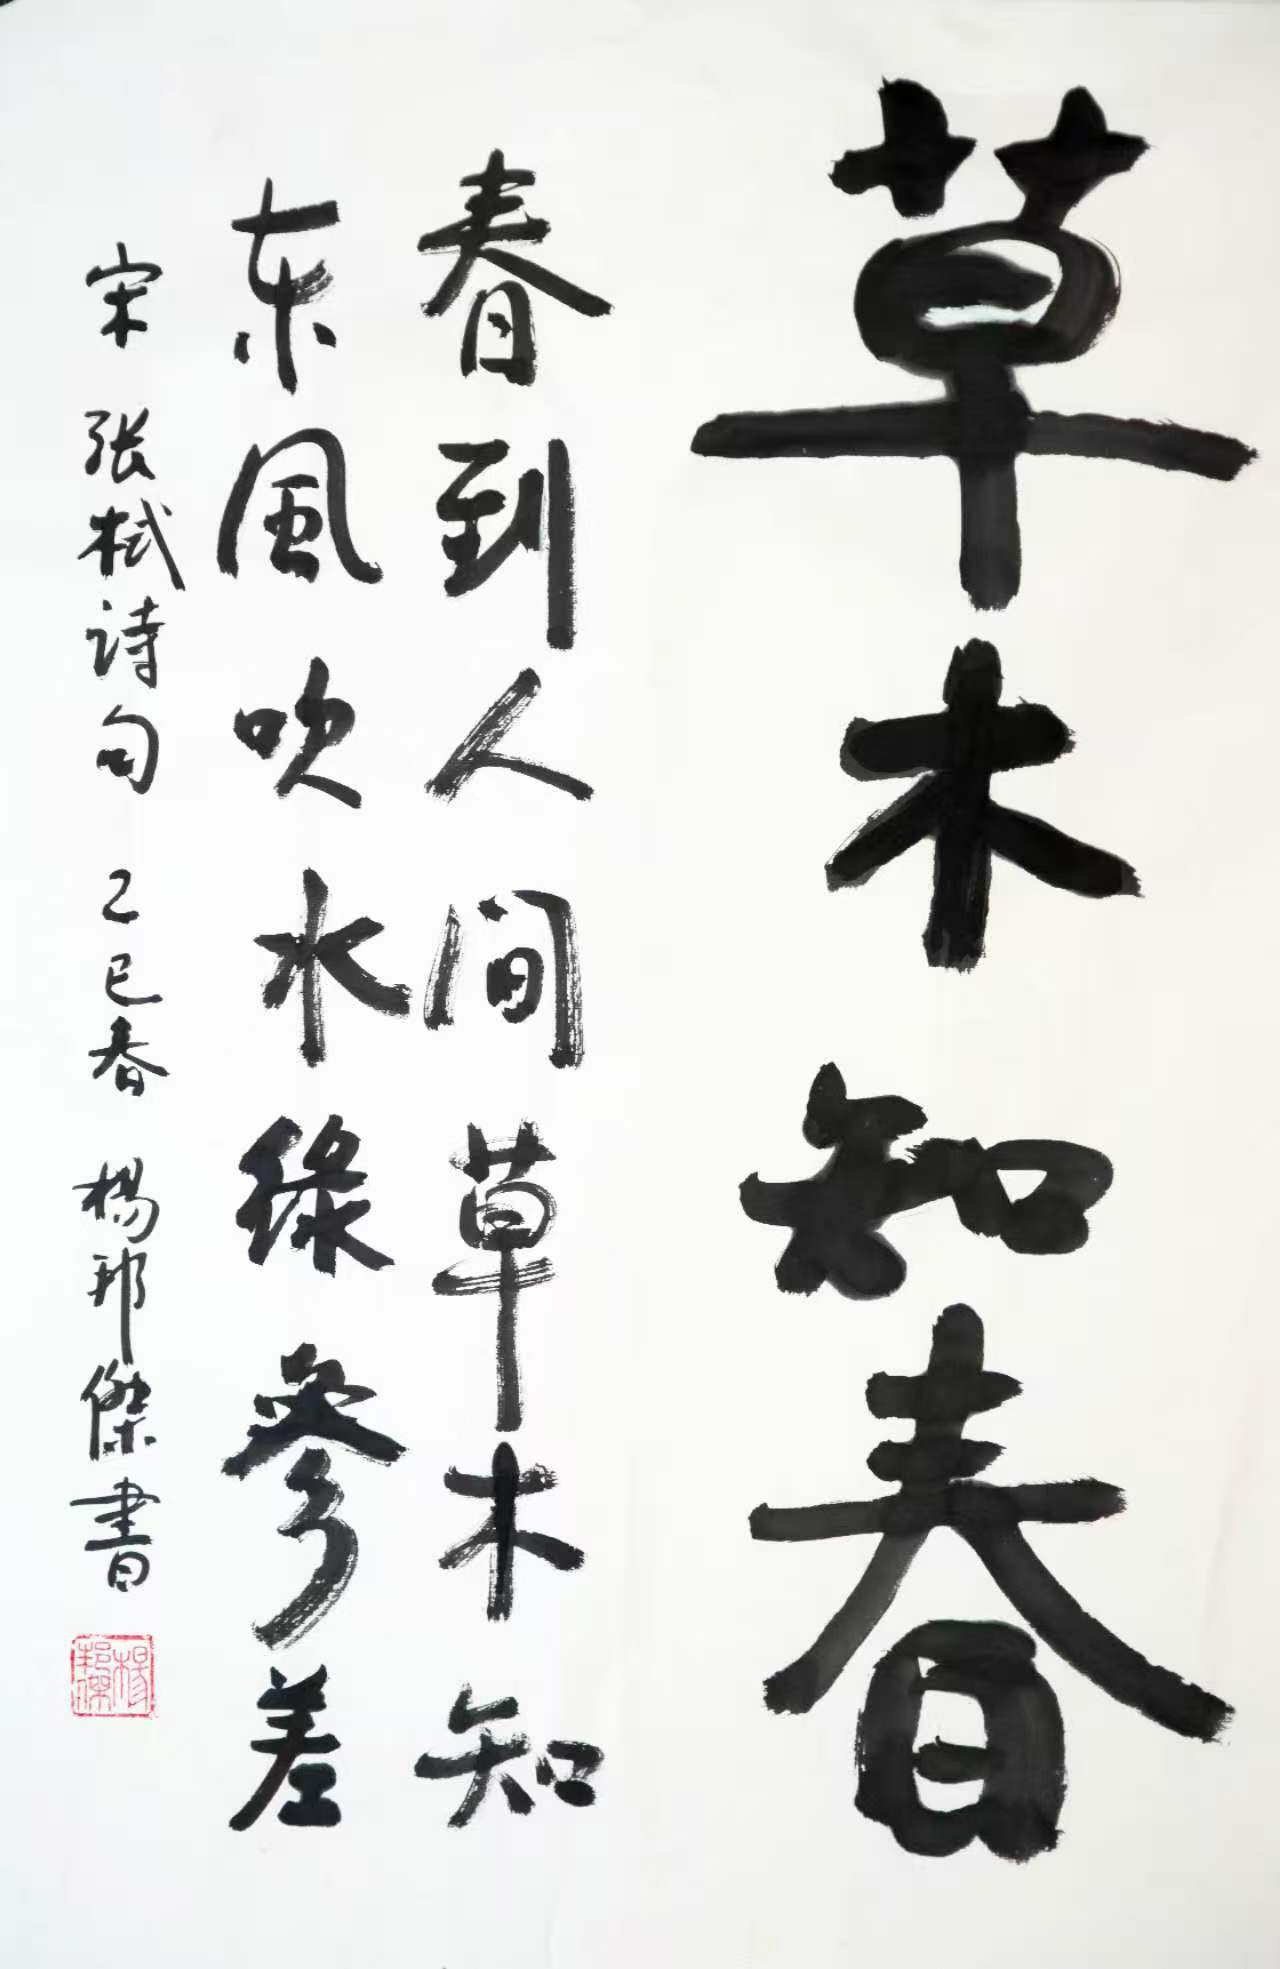 草木知春
春到人间草木知
东風吹水綠參差
宋 张栻诗句 乙巳春 楊邦傑書
楊邦傑